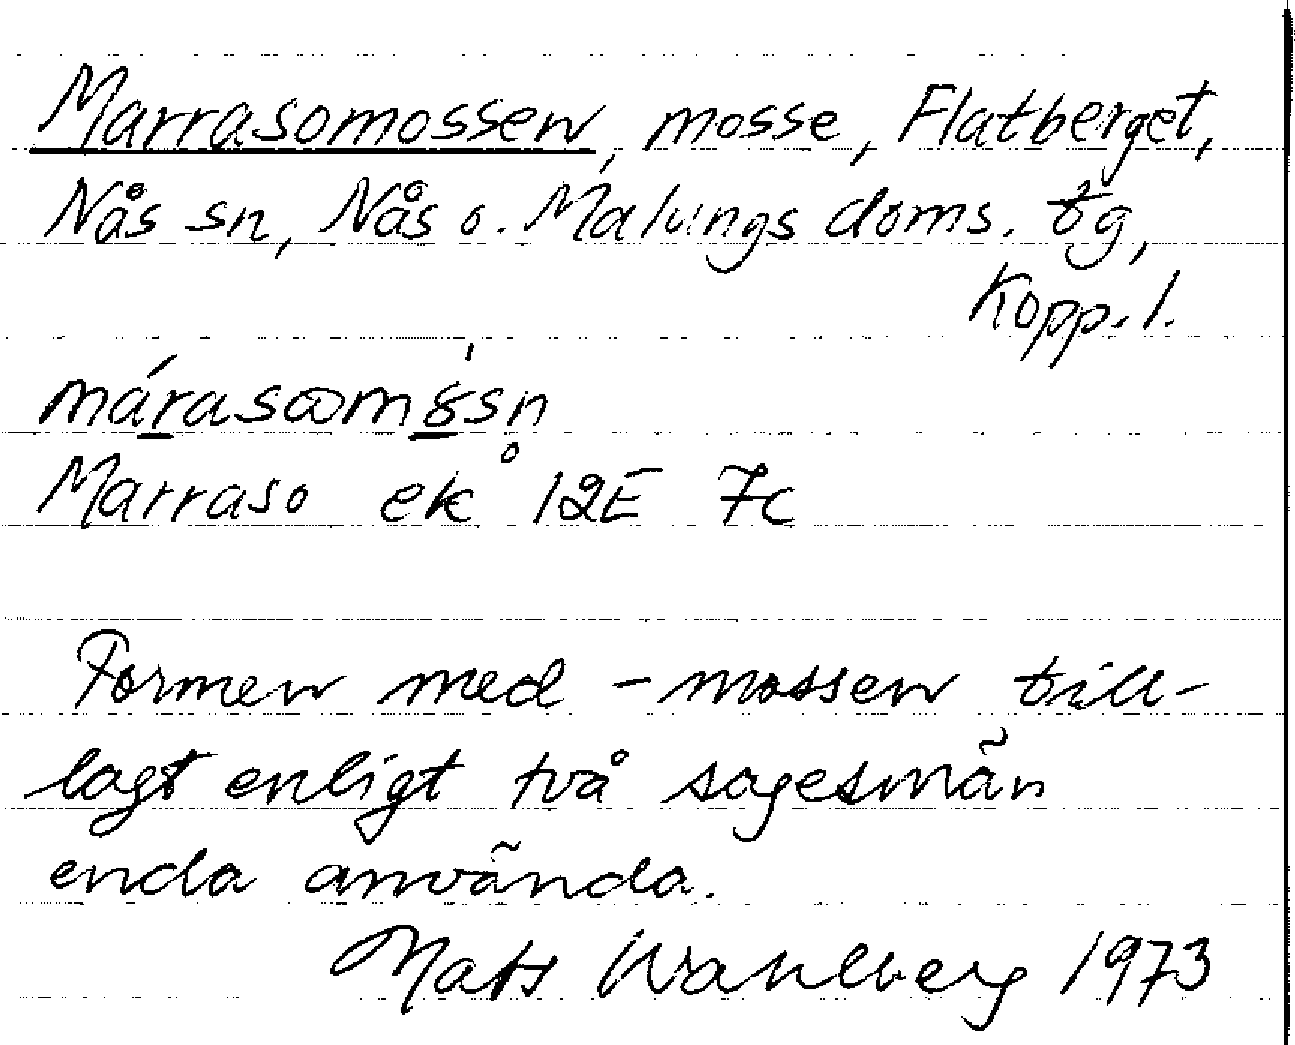 Marrasomossen, mosse, Flatberget,
Nås sn, Nås o. Malungs doms. tg,
Kopp. l.
Marraso ek 12E 7c
Formen med -mossen till-
lagt enligt två sagesmän
enda använda.
Mats Wahlberg 1973